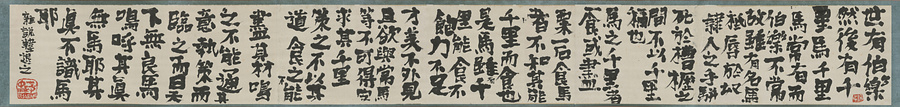 世有伯樂
然後有千
里馬千里
馬常有而
伯樂不常
故雖有名馬
秖辱於奴
隸人之手駢
死於槽櫪之
間不以千里
稱也
馬之千里者一
食或盡而
粟一石食馬
者不知其能
千里而食也
是馬雖千
里能食不
飽力不足
才美不外見
且欲與常馬
等不可得安
求其千里
策之不以其
道食之不能
盡其材鳴
之不能通其
意執策而
臨之而曰天
下無良馬
嗚呼其真
無馬耶其
真不識馬
耶